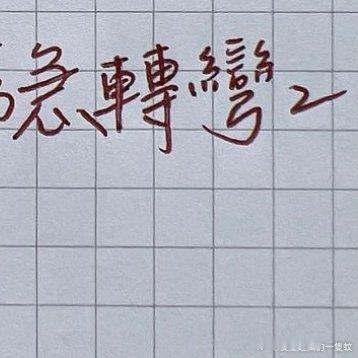 急轉彎2
的一隻蚊